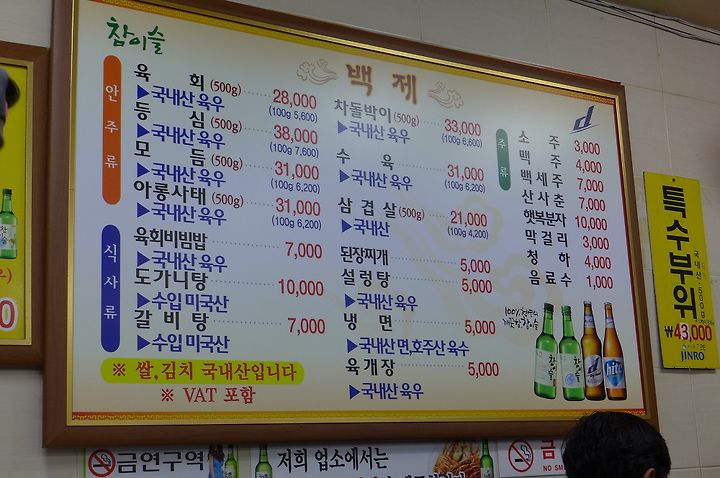 참이슬
백 제
안주류
육 회 (500g) 28,000
▶국내산 육우 (100g 5,600)
등 심 (500g) 38,000
▶국내산 육우 (100g 7,600)
모 듬 (500g) 31,000
▶국내산 육우 (100g 6,200)
아롱사태 (500g) 31,000
▶국내산 육우 (100g 6,200)
차돌박이 (500g) 33,000
▶국내산 육우 (100g 6,600)
수 육 31,000
▶국내산 육우 (100g 6,200)
삼 겹 살 (500g) 21,000
(100g 4,200)
식사류
육회비빔밥 7,000
▶국내산 육우
도가니탕 10,000
▶수입 미국산
갈 비 탕 7,000
▶수입 미국산
된장찌개 5,000
설렁탕 5,000
▶국내산 육우
냉 면 5,000
▶국내산 면,호주산 육수
육개장 5,000
▶국내산 육우
※ 쌀,김치 국내산입니다
※ VAT 포함
d
주류
소 주 3,000
맥 주 4,000
백 세 주 7,000
산 사 춘 7,000
햇복분자 10,000
막 걸 리 3,000
청 하 4,000
음 료 수 1,000
참이슬
d
hite
특수부위
국내산 500g
₩43,000
JINRO
금연구역
저희 업소에서는
금
NO SM
0